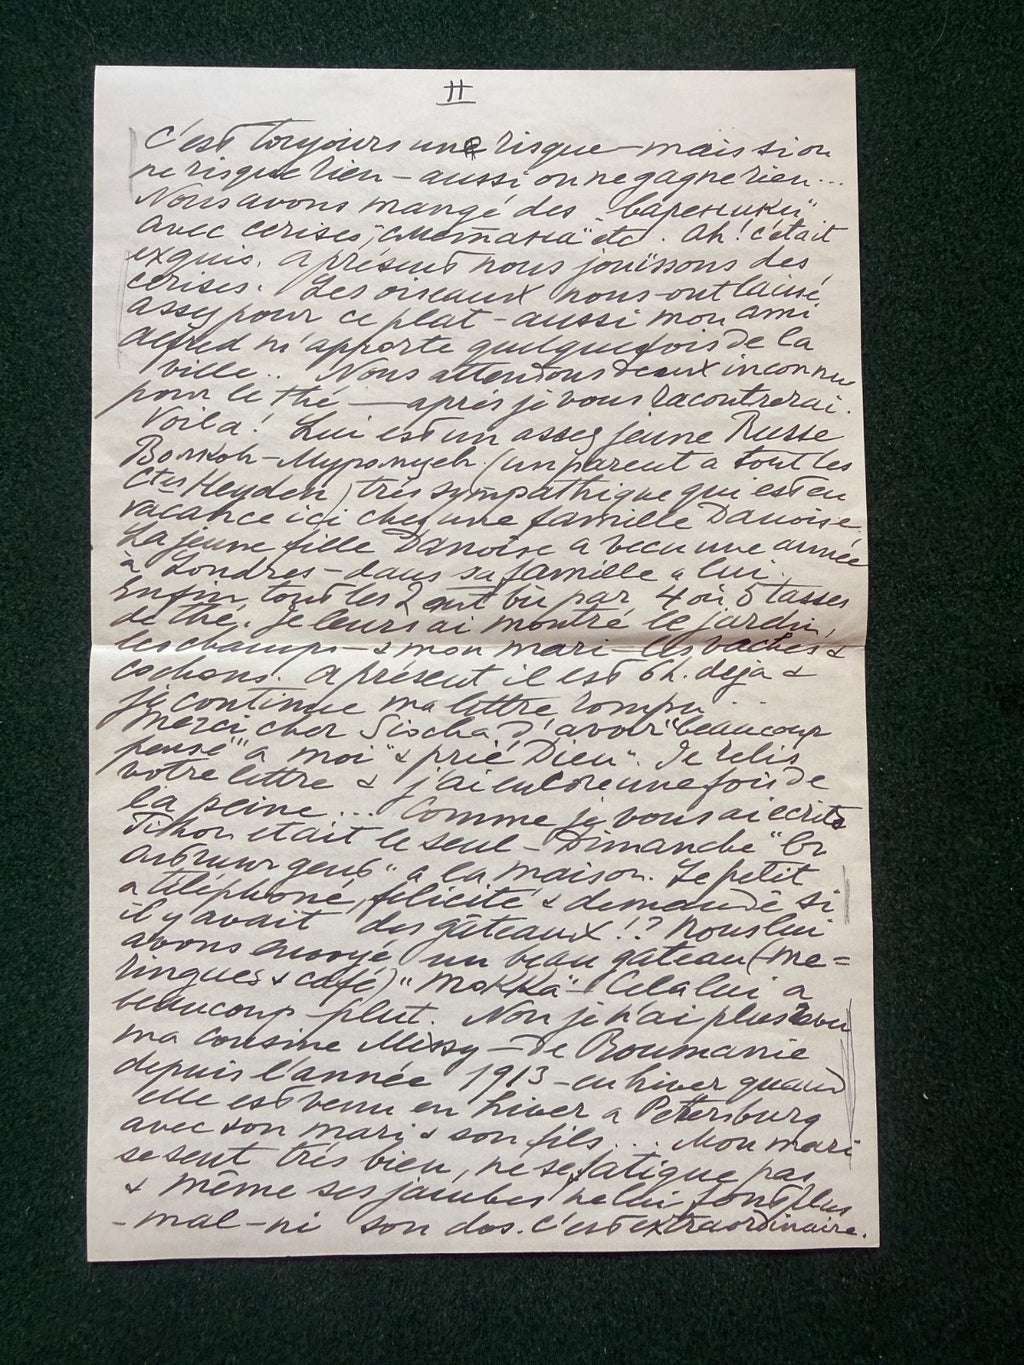 II
C'est toujours une risque – mais si on
ne risque rien – aussi on ne gagne rien...
Nous avons mangé des "вареники"
avec cerises, "сметана" etc. Ah! c'était
exquis. A présent nous jouissons des
cerises. Les oiseaux nous ont laissé
assez pour ce plat – aussi mon ami
Alfred m'apporte quelquefois de la
ville.. Nous attendons deux inconnus
pour le thé — après je vous racontrerai.
Voila! Lui est un assez jeune Russe
(un parent a tout les
Ctes Heyden) très sympathique qui est en
vacance ici chez une famille Danoise.
La jeune fille Danoise a vecu une année
à Londres – dans sa famille a lui.
Enfin tout les 2 ont bu par 4 où 5 tasses
de thé. Je leurs ai montré le jardin,
les champs – & mon mari – les vaches &
cochons. A présent il est 6 h. deja &
je continue ma lettre rompu...
Merci cher Siocha d'avoir "beaucoup
pensé" a moi "& prié Dieu". Je relis
votre lettre & j'ai encore une fois de
la peine... Comme je vous ai ecrits
Tihon etait le seul – Dimanche "
" a la maison. Le petit
a téléphoné, félicité & demandé si
il y avait des gâteaux!? Nous lui
avons envoyé un beau gâteau (me=
ringues & café) "Mokka" – Cela lui a
beaucoup plut. Non je n'ai plus revu
ma cousine Missy – de Roumanie
depuis l'année 1913 – en hiver quand
elle est venu en hiver a Petersburg
avec son mari & son fils... Mon mari
se sent très bien, ne se fatigue pas
& même ses jambes ne lui font plus
– mal – ni son dos. C'est extraordinaire.